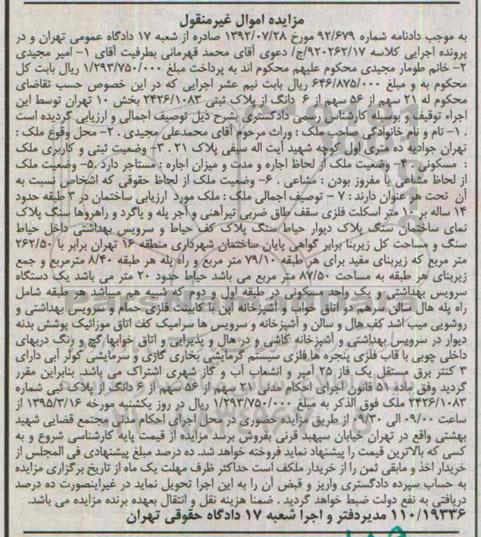 مزایده اموال غیرمنقول
به موجب دادنامه شماره ۹۲/۶۷۹ مورخ ۱۳۹۲/۰۷/۲۸ صادره از شعبه ۱۷ دادگاه عمومی تهران و در
پرونده اجرایی کلاسه ۹۲۰۲۶۲/۱۷/ج/ دعوی آقای محمد قهرمانی بطرفیت آقای ۱- امیر مجیدی
۲- خانم طومار مجیدی محکوم علیهم محکوم اند به پرداخت مبلغ ۱/۲۹۳/۷۵۰/۰۰۰ ریال بابت کل
محکوم به و مبلغ ۶۴۶/۸۷۵/۰۰۰ ریال بابت نیم عشر اجرایی که در این خصوص حسب تقاضای
محکوم له ۲۱ سهم از ۵۶ سهم از ۶ دانگ از پلاک ثبتی ۲۴۲۶/۱۰۸۳ بخش ۱۰ تهران توسط این
اجراء توقیف و بوسیله کارشناس رسمی دادگستری بشرح ذیل توصیف اجمالی و ارزیابی گردیده است
. ۱- نام و نام خانوادگی صاحب ملک : وراث مرحوم آقای محمدعلی مجیدی . ۲- محل وقوع ملک :
تهران جوادیه ده متری اول کوچه شهید آیت اله سیفی پلاک ۲۱ .۳- وضعیت ثبتی و کاربری ملک
: مسکونی . ۴- وضعیت ملک از لحاظ اجاره و مدت و میزان اجاره : مستاجر دارد .۵- وضعیت ملک
از لحاظ مشاعی یا مفروز بودن : مشاعی . ۶- وضعیت ملک از لحاظ حقوقی که اشخاص نسبت به
آن تحت هر عنوان دارند : ۷ - توصیف اجمالی ملک : ملک مورد ارزیابی ساختمان در ۳ طبقه حدود
۱۴ ساله بر ۱۰ متر اسکلت فلزی سقف طاق ضربی تیرآهنی و آجر پله و پاگرد و راهروها سنگ پلاک
نمای ساختمان سنگ پلاک دیوار حیاط سنگ پلاک کف حیاط و سرویس بهداشتی داخل حیاط
سنگ و مساحت کل زیربنا برابر گواهی پایان ساختمان شهرداری منطقه ۱۶ تهران برابر با ۲۶۲/۵۰
متر مربع که زیربنای مفید برای هر طبقه ۷۹/۱۰ متر مربع و راه پله هر طبقه ۸/۴۰ مترمربع و جمع
زیربنای هر طبقه به مساحت ۸۷/۵۰ متر مربع می باشد حیاط حدود ۲۰ متر می باشد یک دستگاه
سرویس بهداشتی و یک واحد مسکونی در طبقه اول و دوم که شبیه هم میباشد هر طبقه شامل
راه پله هال سالن سرهم دو اتاق خواب و آشپزخانه اپن با کابینت فلزی حمام و سرویس بهداشتی و
روشویی میب اشد کف هال و سالن و آشپزخانه و سرویس ها سرامیک کف اتاق موزائیک پوشش بدنه
دیوار در سرویس بهداشتی و آشپزخانه کاشی و در هال و پذیرایی و اتاق خوابها گچ و رنگ دربهای
داخلی چوبی با قاب فلزی پنجره ها فلزی سیستم گرمایشی بخاری گازی و سرمایشی کولر آبی دارای
۳ کنتر برق مستقل یک فاز ۲۵ آمپر و انشعاب آب و گاز شهری اشتراک می باشد. بنابراین مقرر
گردید وفق ماده ۵۱ قانون اجرای احکام مدنی ۲۱ سهم از ۵۶ سهم از ۶ دانگ از پلاک ثبتی شماره
۲۴۲۶/۱۰۸۳ ملک فوق الذکر به مبلغ ۱/۲۹۳/۷۵۰/۰۰۰ ریال در روز یکشنبه مورخه ۱۳۹۵/۳/۱۶ از
ساعت ۰۹/۰۰ الی ۰۹/۳۰ از طریق مزایده حضوری در محل اجرای احکام مدنی مجتمع قضایی شهید
بهشتی واقع در تهران خیابان سپهبد قرنی بفروش برسد مزایده از قیمت پایه کارشناسی شروع و به
کسی که بالاترین قیمت را پیشنهاد نماید فروخته خواهد شد. ده درصد مبلغ پیشنهادی فی المجلس از
خریدار اخذ و مابقی ثمن را از خریدار مکلف است حداکثر ظرف مهلت یک ماه از تاریخ برگزاری مزایده
به حساب سپرده دادگستری واریز و قبض آن را به این اجرا تحویل نماید در غیراینصورت ده درصد
دریافتی به نفع دولت ضبط خواهد گردید . ضمنا هزینه نقل و انتقال بعهده برنده مزایده می باشد.
۱۱۰/۱۹۳۳۶ مدیردفتر و اجرا شعبه ۱۷ دادگاه حقوقی تهران